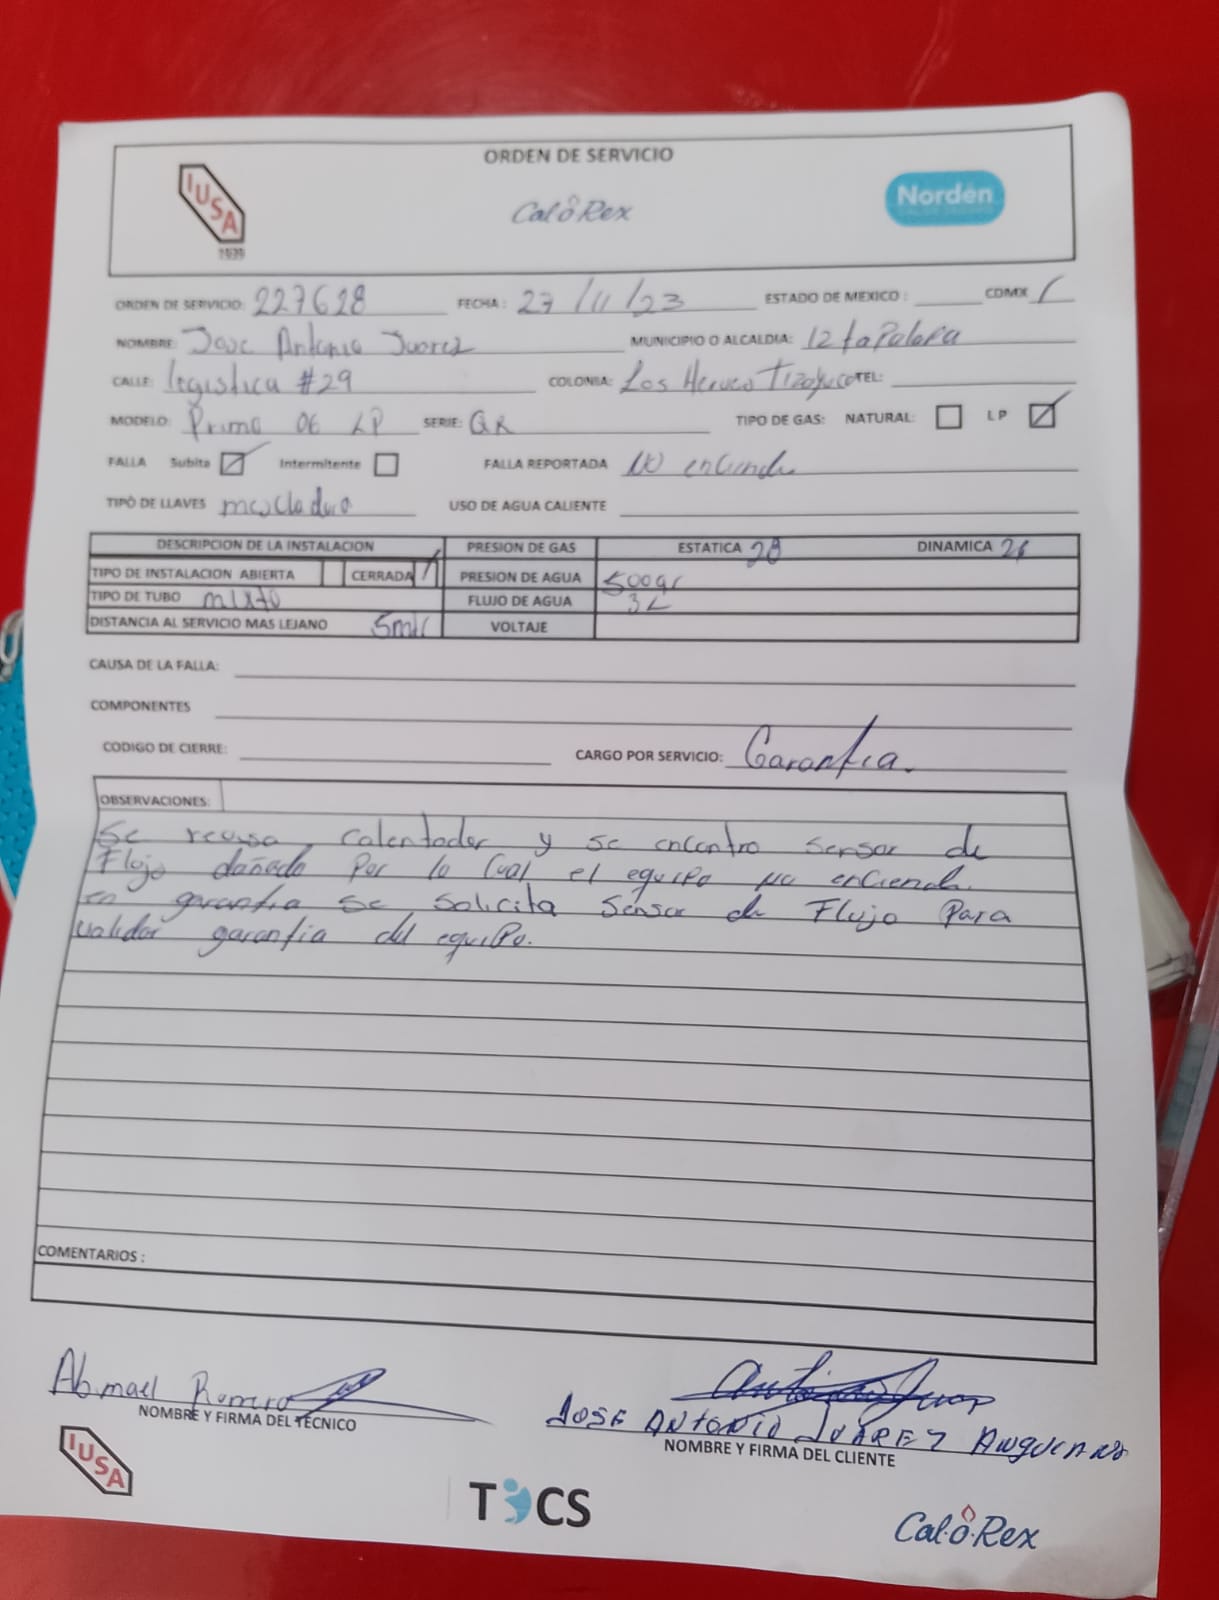 ORDEN DE SERVICIO
IUSA
1939
Cal-O-Rex
Nordén
ORDEN DE SERVICIO: 227628 FECHA: 27/11/23 ESTADO DE MEXICO: CDMX /
NOMBRE: Jose Antonio Juarez MUNICIPIO O ALCALDIA: Iztapalapa
CALLE: logistica #29 COLONIA: Los Heroes Tizayuca TEL:
MODELO: Prime 06 LP SERIE: QR TIPO DE GAS: NATURAL: LP
FALLA Subita Intermitente FALLA REPORTADA No enciende
TIPO DE LLAVES mezcladora USO DE AGUA CALIENTE
DESCRIPCION DE LA INSTALACION PRESION DE GAS ESTATICA 28 DINAMICA 26
TIPO DE INSTALACION ABIERTA CERRADA / PRESION DE AGUA 500gr
TIPO DE TUBO mixto FLUJO DE AGUA 3L
DISTANCIA AL SERVICIO MAS LEJANO 5mtr VOLTAJE
CAUSA DE LA FALLA:
COMPONENTES
CODIGO DE CIERRE: CARGO POR SERVICIO: Garantia.
OBSERVACIONES:
Se revisa calentador y se encontro sensor de
Flujo dañado Por lo Cual el equipo no enciende.
en garantia se solicita sensor de Flujo Para
validar garantia del equipo.
COMENTARIOS :
Abimael Romero
NOMBRE Y FIRMA DEL TÉCNICO
JOSE ANTONIO JUAREZ
NOMBRE Y FIRMA DEL CLIENTE
IUSA
TICS
Cal-O-Rex